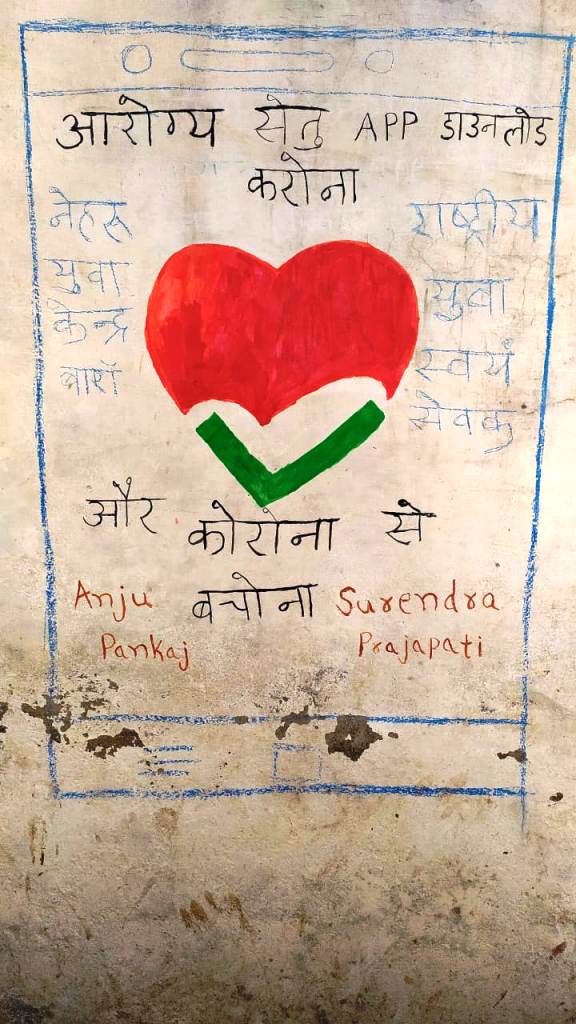 आरोग्य सेतु APP डाउनलोड
करोना
नेहरू
युवा
केन्द्र
राष्ट्रीय
युवा
स्वयं
सेवक
और कोरोना से
बचोना
Anju
Pankaj
Surendra
Prajapati